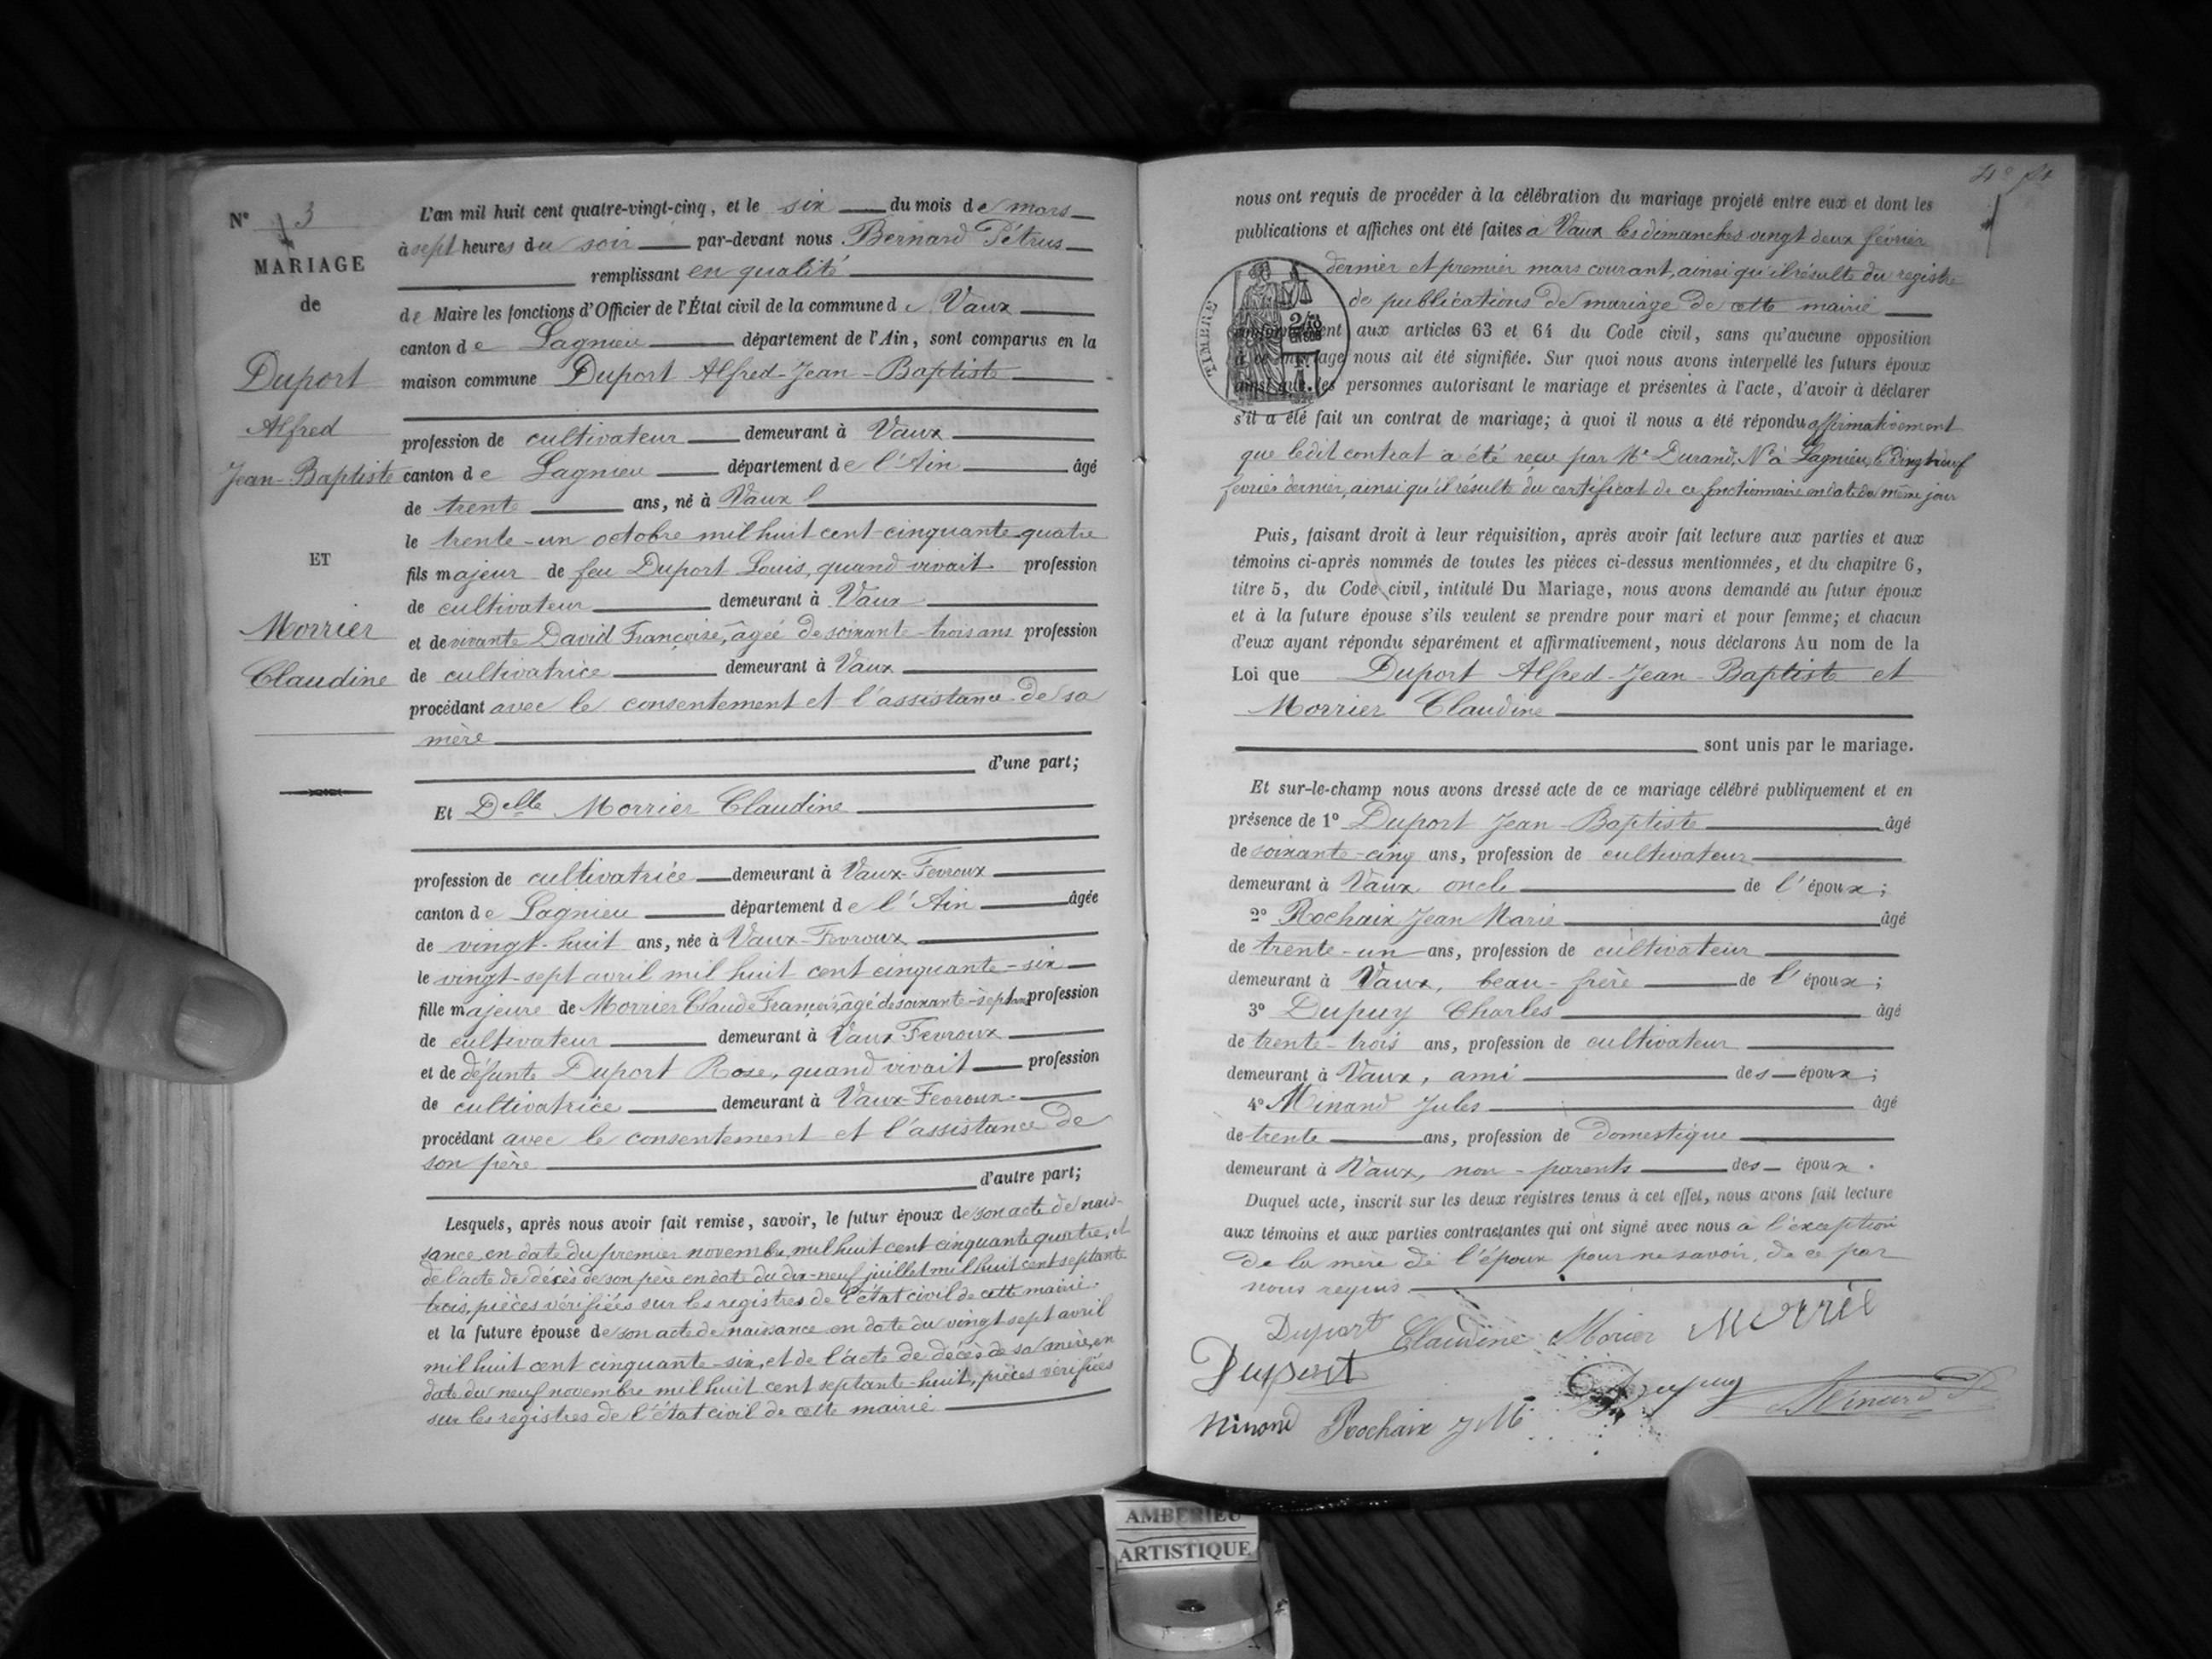 N° 3
MARIAGE
de
Duport
Alfred
Jean-Baptiste
ET
Morrier
Claudine
L'an mil huit cent quatre-vingt-cinq, et le six du mois de mars
à sept heures du soir par-devant nous Bernard Pétrus
remplissant en qualité
de Maire les fonctions d'Officier de l'État civil de la commune de Vaux
canton de Lagnieu département de l'Ain, sont comparus en la
maison commune Duport Alfred-Jean-Baptiste
profession de cultivateur demeurant à Vaux
canton de Lagnieu département de l'Ain âgé
de trente ans, né à Vaux
le trente-un octobre mil huit cent cinquante quatre
fils majeur de feu Duport Louis, quand vivait profession
de cultivateur demeurant à Vaux
et de vivante David Françoise, âgée de soixante-trois ans profession
de cultivatrice demeurant à Vaux
procédant avec le consentement et l'assistance de sa
mère
d'une part;
Et Delle Morrier Claudine
profession de cultivatrice demeurant à Vaux-Fevroux
canton de Lagnieu département de l'Ain âgée
de vingt-huit ans, née à Vaux-Fevroux
le vingt-sept avril mil huit cent cinquante-six
fille majeure de Morrier Claude François, âgé de soixante-sept ans profession
de cultivateur demeurant à Vaux Fevroux
et de défunte Duport Rose, quand vivait profession
de cultivatrice demeurant à Vaux-Fevroux
procédant avec le consentement et l'assistance de
son père
d'autre part;
Lesquels, après nous avoir fait remise, savoir, le futur époux de son acte de nais-
sance en date du premier novembre mil huit cent cinquante quatre, et
de l'acte de décès de son père en date du dix-neuf juillet mil huit cent septante
trois, pièces vérifiées sur les registres de l'état civil de cette mairie
et la future épouse de son acte de naissance en date du vingt sept avril
mil huit cent cinquante-six, et de l'acte de décès de sa mère, en
date du neuf novembre mil huit cent septante-huit, pièces vérifiées
sur les registres de l'état civil de cette mairie
nous ont requis de procéder à la célébration du mariage projeté entre eux et dont les
publications et affiches ont été faites à Vaux les dimanches vingt deux février
dernier et premier mars courant, ainsi qu'il résulte du registre
de publications de mariage de cette mairie
conformément aux articles 63 et 64 du Code civil, sans qu'aucune opposition
à ce mariage nous ait été signifiée. Sur quoi nous avons interpellé les futurs époux
ainsi que les personnes autorisant le mariage et présentes à l'acte, d'avoir à déclarer
s'il a été fait un contrat de mariage; à quoi il nous a été répondu affirmativement
que ledit contrat a été reçu par Me Durand, Nre à Lagnieu, le
février dernier, ainsi qu'il résulte du certificat de ce fonctionnaire en date du même jour
TIMBRE
Puis, faisant droit à leur réquisition, après avoir fait lecture aux parties et aux
témoins ci-après nommés de toutes les pièces ci-dessus mentionnées, et du chapitre 6,
titre 5, du Code civil, intitulé Du Mariage, nous avons demandé au futur époux
et à la future épouse s'ils veulent se prendre pour mari et pour femme; et chacun
d'eux ayant répondu séparément et affirmativement, nous déclarons Au nom de la
Loi que Duport Alfred-Jean-Baptiste et
Morrier Claudine
sont unis par le mariage.
Et sur-le-champ nous avons dressé acte de ce mariage célébré publiquement et en
présence de 1° Duport Jean-Baptiste âgé
de soixante-cinq ans, profession de cultivateur
demeurant à Vaux oncle de l'époux;
2° Rochaix Jean Marie âgé
de trente-un ans, profession de cultivateur
demeurant à Vaux, beau-frère de l'époux;
3° Dupuy Charles âgé
de trente-trois ans, profession de cultivateur
demeurant à Vaux, ami des époux;
4° Minand Jules âgé
de trente ans, profession de domestique
demeurant à Vaux, non-parents des époux.
Duquel acte, inscrit sur les deux registres tenus à cet effet, nous avons fait lecture
aux témoins et aux parties contractantes qui ont signé avec nous à l'exception
de la mère de l'époux pour ne savoir, de ce par
nous requis
Duport Claudine Morier Morrie
Duport Dupuy
Minand Rochaix JM
AMBERIEU
ARTISTIQUE